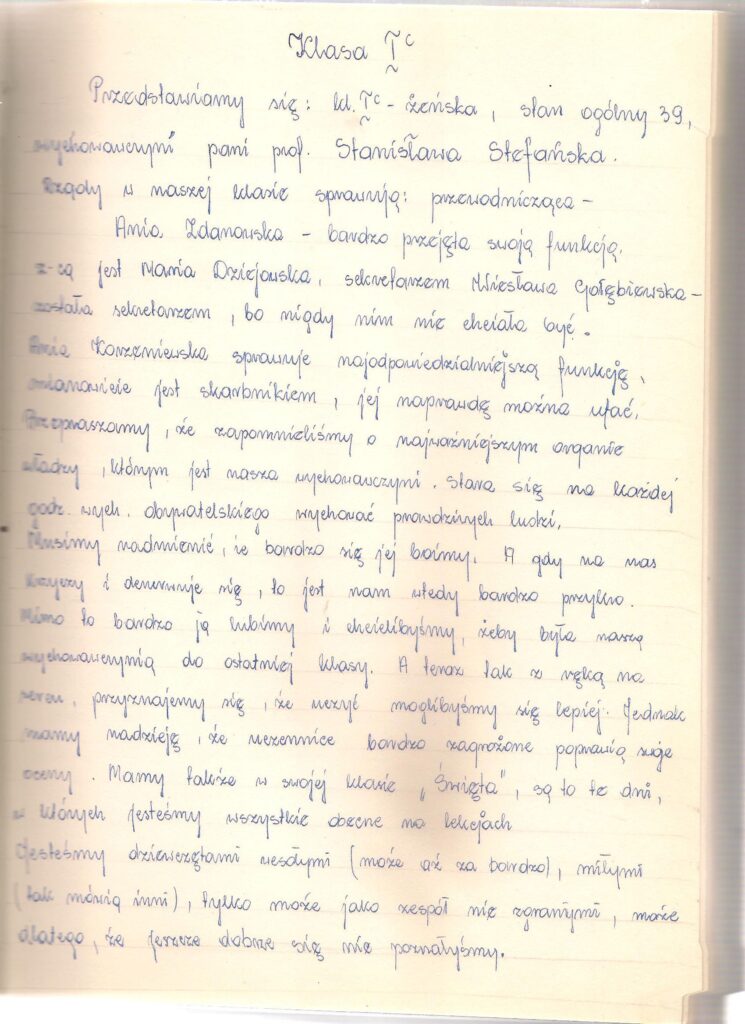 Klasa I^c
Przedstawiamy się: kl. I^c - żeńska, stan ogólny 39,
wychowawczyni pani prof. Stanisława Stefańska.
Rządy w naszej klasie sprawują: przewodnicząca -
Ania Zdanowska - bardzo przejęta swoją funkcją,
z-cą jest Maria Dziejowska, sekretarzem Wiesława Gołębiewska -
została sekretarzem, bo nigdy nim nie chciała być.
Ania Korzeniewska sprawuje najodpowiedzialniejszą funkcję,
mianowicie jest skarbnikiem, jej naprawdę można ufać.
Przepraszamy, że zapomnieliśmy o najważniejszym organie
władzy, którym jest nasza wychowawczyni. Stara się na każdej
godz. wych. obywatelskiego wychować prawdziwych ludzi.
Musimy nadmienić, że bardzo się jej boimy. A gdy na nas
krzyczy i denerwuje się, to jest nam wtedy bardzo przykro.
Mimo to bardzo ją lubimy i chcielibyśmy, żeby była naszą
wychowawczynią do ostatniej klasy. A teraz tak z ręką na
sercu, przyznajemy się, że uczyć mogłibyśmy się lepiej. Jednak
mamy nadzieję, że uczennice bardzo zagrożone poprawią swoje
oceny. Mamy także w swojej klasie "Święta", są to te dni,
w których jesteśmy wszystkie obecne na lekcjach
Jesteśmy dziewczętami wesołymi (może aż za bardzo), miłymi
(tak mówią inni), tylko może jako zespół nie zgranymi, może
dlatego, że jeszcze dobrze się nie poznałyśmy.